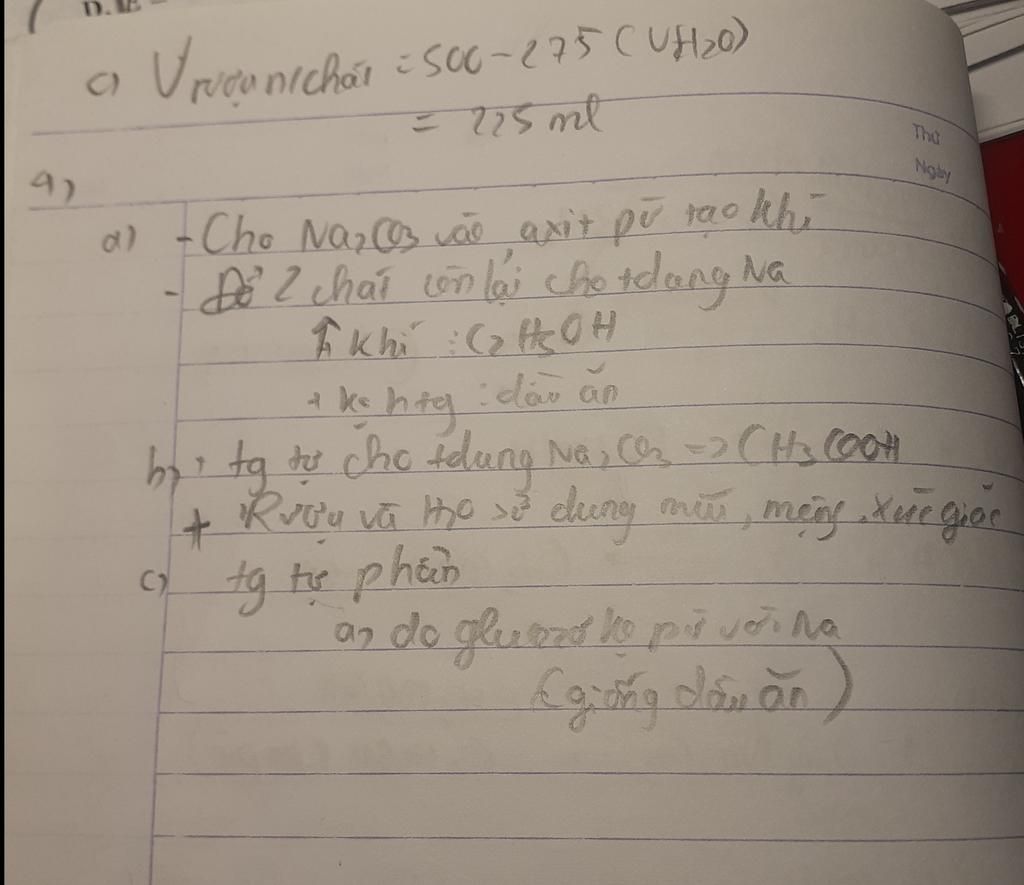 c) Vrượu n/chất = 500 - 275 (VH2O)
= 225 ml
Thứ
Ngày
4)
a) - Cho Na2CO3 vào, axit pứ tạo khí
- Để 2 chất còn lại cho tdang Na
khí : C2H5OH
+ kọ htg : dầu ăn
b) tg tự cho tdung Na2CO3 => CH3COOH
+ Rượu và H2O sử dung mũi, miệng, xúc giác
c) tg tự phần
a, do glucozơ kọ pứ với Na
(giống dầu ăn)